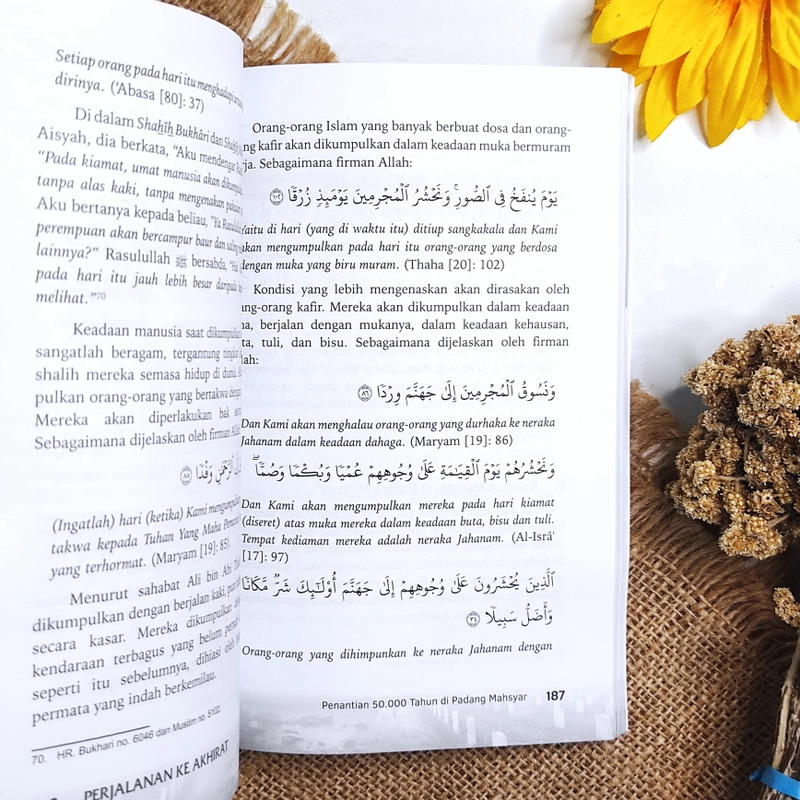 Setiap orang pada hari itu menghadapi
dirinya. ('Abasa [80]: 37)
Di dalam Shaḫîḫ Bukhâri dan
Aisyah, dia berkata, "Aku mendengar
"Pada kiamat, umat manusia akan
tanpa alas kaki, tanpa mengenakan
Aku bertanya kepada beliau, "Ya
perempuan akan bercampur baur dan
lainnya?" Rasulullah ﷺ bersabda,
pada hari itu jauh lebih besar daripada
melihat."70
Keadaan manusia saat
sangatlah beragam, tergantung
shalih mereka semasa hidup di dunia.
pulkan orang-orang yang bertakwa
Mereka akan diperlakukan bak
Sebagaimana dijelaskan oleh firman
وَفْدًا ٨٥
(Ingatlah) hari (ketika) Kami
takwa kepada Tuhan Yang Maha
yang terhormat. (Maryam [19]: 85)
Menurut sahabat Ali bin Abi
dikumpulkan dengan berjalan kaki,
secara kasar. Mereka dikumpulkan
kendaraan terbagus yang belum
seperti itu sebelumnya, dihiasi oleh
permata yang indah berkemilau.
70. HR. Bukhari no. 6046 dan Muslim no. 5102.
PERJALANAN KE AKHIRAT
Orang-orang Islam yang banyak berbuat dosa dan orang-
ng kafir akan dikumpulkan dalam keadaan muka bermuram
rja. Sebagaimana firman Allah:
يَوْمَ يُنفَخُ فِى ٱلصُّورِ ۚ وَنَحْشُرُ ٱلْمُجْرِمِينَ يَوْمَئِذٍ زُرْقًا ١٠٢
Yaitu di hari (yang di waktu itu) ditiup sangkakala dan Kami
akan mengumpulkan pada hari itu orang-orang yang berdosa
dengan muka yang biru muram. (Thaha [20]: 102)
Kondisi yang lebih mengenaskan akan dirasakan oleh
ng-orang kafir. Mereka akan dikumpulkan dalam keadaan
na, berjalan dengan mukanya, dalam keadaan kehausan,
ta, tuli, dan bisu. Sebagaimana dijelaskan oleh firman
lah:
وَنَسُوقُ ٱلْمُجْرِمِينَ إِلَىٰ جَهَنَّمَ وِرْدًا ٨٦
Dan Kami akan menghalau orang-orang yang durhaka ke neraka
Jahanam dalam keadaan dahaga. (Maryam [19]: 86)
وَنَحْشُرُهُمْ يَوْمَ ٱلْقِيَـٰمَةِ عَلَىٰ وُجُوهِهِمْ عُمْيًا وَبُكْمًا وَصُمًّا ۖ
Dan Kami akan mengumpulkan mereka pada hari kiamat
(diseret) atas muka mereka dalam keadaan buta, bisu dan tuli.
Tempat kediaman mereka adalah neraka Jahanam. (Al-Isrâ'
[17]: 97)
ٱلَّذِينَ يُحْشَرُونَ عَلَىٰ وُجُوهِهِمْ إِلَىٰ جَهَنَّمَ أُو۟لَـٰٓئِكَ شَرٌّ مَّكَانًا
وَأَضَلُّ سَبِيلًا ٣٤
Orang-orang yang dihimpunkan ke neraka Jahanam dengan
Penantian 50.000 Tahun di Padang Mahsyar 187